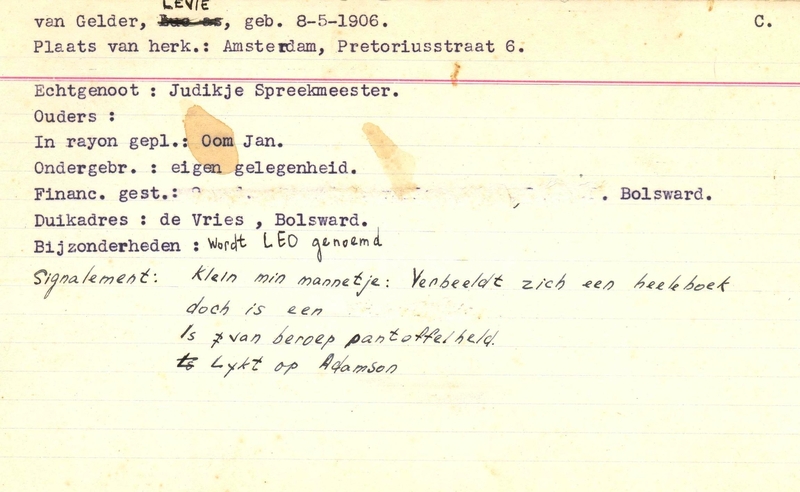 LEVIE
van Gelder, , geb. 8-5-1906. C.
Plaats van herk.: Amsterdam, Pretoriusstraat 6.
Echtgenoot : Judikje Spreekmeester.
Ouders :
In rayon gepl.: Oom Jan.
Ondergebr. : eigen gelegenheid.
Financ. gest.: . Bolsward.
Duikadres : de Vries , Bolsward.
Bijzonderheden : wordt LEO genoemd
Signalement: Klein min mannetje: Verbeeldt zich een heeleboek
doch is een
Is van beroep pantoffelheld.
Is Lykt op Adamson